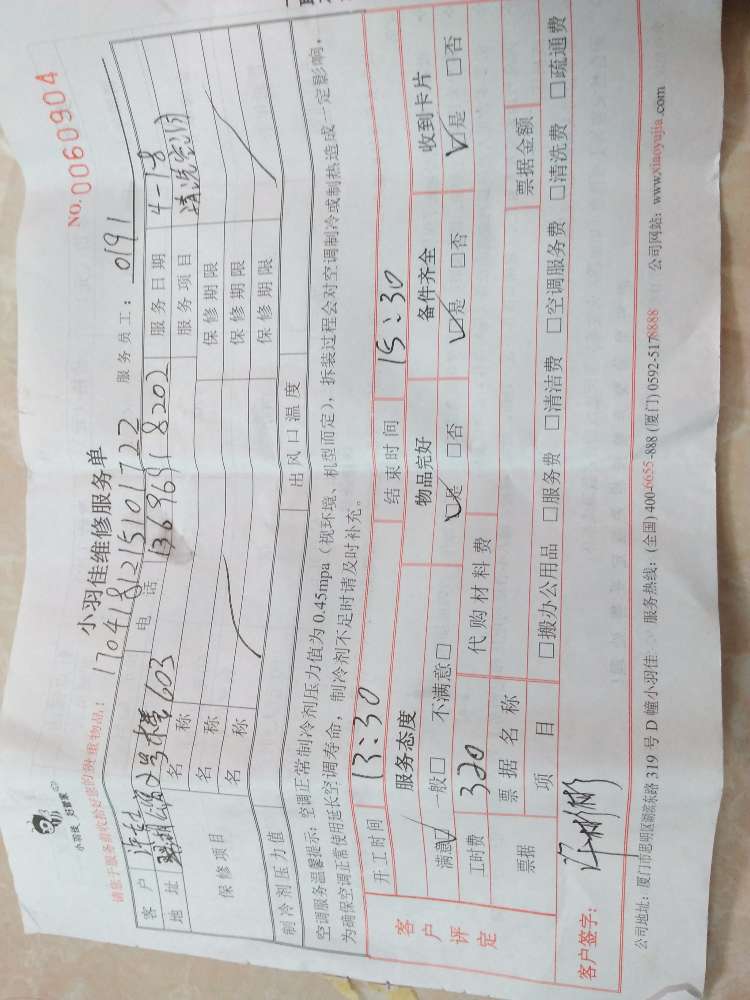 NO. 0060904
小羽佳 好管家
请您于服务前收拾好您的贵重物品!
小羽佳维修服务单
服务员工: 0191
1704181215101722
客户 电话 13696918202 服务日期 4-18
地址 2号楼603 服务项目 清洗空调
保修项目 名称 保修期限
名称 保修期限
名称 保修期限
制冷剂压力值 出风口温度
空调服务温馨提示: 空调正常制冷剂压力值为 0.45mpa（视环境、机型而定），拆装过程会对空调制冷或制热造成一定影响，
为确保空调正常使用延长空调寿命，制冷剂不足时请及时补充。
开工时间 13:30 结束时间 15:30
客户评定 服务态度 物品完好 备件齐全 收到卡片
满意☑ 一般□ 不满意□ ☑是 □否 ☑是 □否 ☑是 □否
工时费 320 代购材料费
票据 票据名称 票据金额
项目 □搬办公用品 □服务费 □清洁费 □空调服务费 □清洗费 □疏通费
客户签字: 许彬彬
公司地址: 厦门市思明区湖滨东路 319 号 D 幢小羽佳 服务热线: (全国) 400-6655-888 (厦门) 0592-5178888 公司网站: www.xiaoyujia.com